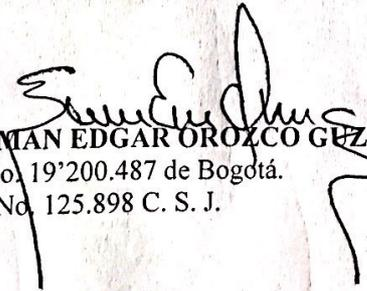 MAN EDGAR OROZCO GUZ
o. 19’200.487 de Bogotá.
No. 125.898 C. S. J.